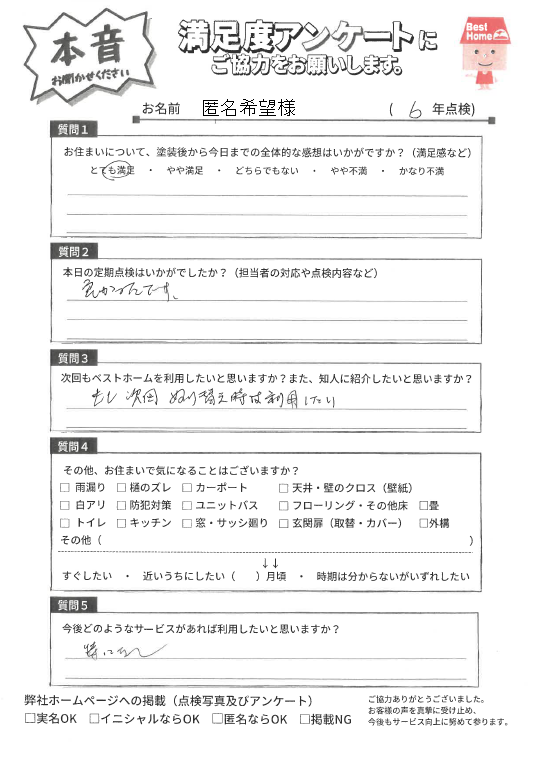 本音
お聞かせください
満足度アンケートに
ご協力をお願いします。
Best
Home
お名前 匿名希望様 ( 6 年点検)
質問1
お住まいについて、塗装後から今日までの全体的な感想はいかがですか?(満足感など)
とても満足 ・ やや満足 ・ どちらでもない ・ やや不満 ・ かなり不満
質問2
本日の定期点検はいかがでしたか?(担当者の対応や点検内容など)
良かったです。
質問3
次回もベストホームを利用したいと思いますか?また、知人に紹介したいと思いますか?
もし次回ぬり替え時は利用したい
質問4
その他、お住まいで気になることはございますか?
□ 雨漏り □ 樋のズレ □ カーポート □ 天井・壁のクロス(壁紙)
□ 白アリ □ 防犯対策 □ ユニットバス □ フローリング・その他床 □畳
□ トイレ □ キッチン □ 窓・サッシ廻り □ 玄関扉(取替・カバー) □外構
その他( )
↓↓
すぐしたい ・ 近いうちにしたい( )月頃 ・ 時期は分からないがいずれしたい
質問5
今後どのようなサービスがあれば利用したいと思いますか?
特になし
弊社ホームページへの掲載(点検写真及びアンケート)
□実名OK □イニシャルならOK □匿名ならOK □掲載NG
ご協力ありがとうございました。
お客様の声を真摯に受け止め、
今後もサービス向上に努めて参ります。